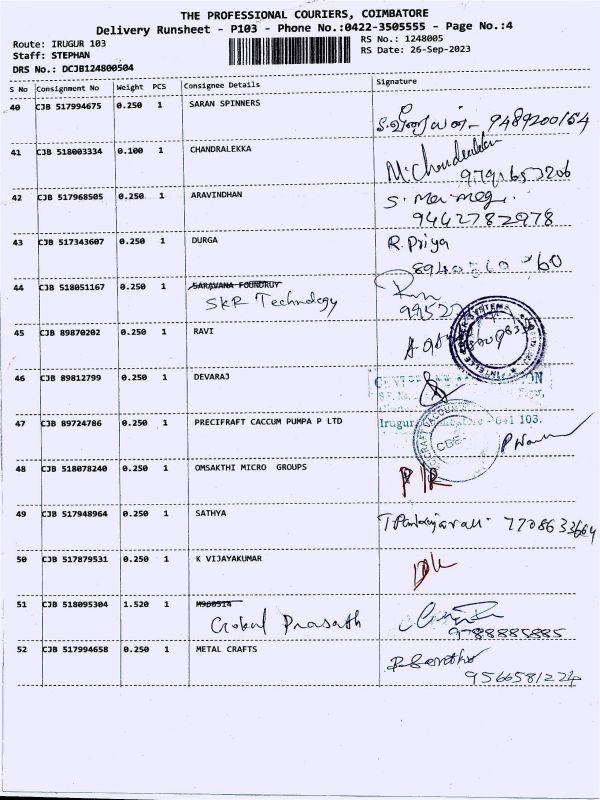 THE PROFESSIONAL COURIERS, COIMBATORE
Delivery Runsheet - P103 - Phone No.:0422-3505555 - Page No.:4
Route: IRUGUR 103
RS No.: 1248005
Staff: STEPHAN
RS Date: 26-Sep-2023
DRS No.: DCJB124800504
S No Consignment No Weight PCS Consignee Details Signature
40 CJB 517994675 0.250 1 SARAN SPINNERS
9489200164
41 CJB 518003334 0.100 1 CHANDRALEKKA
42 CJB 517968505 0.250 1 ARAVINDHAN
9442782978
43 CJB 517343607 0.250 1 DURGA R. Priya
44 CJB 518051167 0.250 1 SARAVANA FOUNDRUY
SKR Technology
45 CJB 89870202 0.250 1 RAVI
46 CJB 89812799 0.250 1 DEVARAJ
47 CJB 89724786 0.250 1 PRECIFRAFT CACCUM PUMPA P LTD Irugur, 641 103.
CBE
48 CJB 518078240 0.250 1 OMSAKTHI MICRO GROUPS
49 CJB 517948964 0.250 1 SATHYA 7708633664
50 CJB 517879531 0.250 1 K VIJAYAKUMAR
51 CJB 518095304 1.520 1 M960514
Gokul Prasath
9788885885
52 CJB 517994658 0.250 1 METAL CRAFTS
9566581224